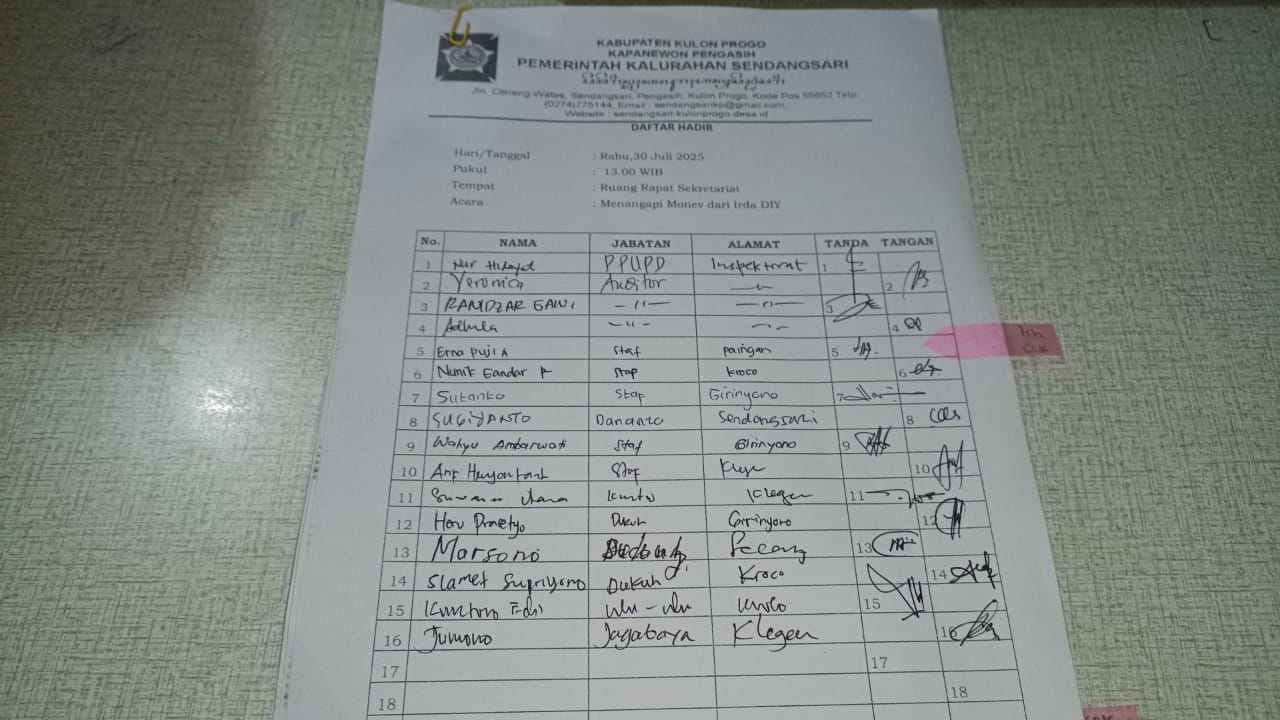 KABUPATEN KULON PROGO
KAPANEWON PENGASIH
PEMERINTAH KALURAHAN SENDANGSARI
Jln. Clereng-Wates, Sendangsari, Pengasih, Kulon Progo, Kode Pos 55652 Telp.
(0274)775144, Email : sendangsarikp@gmail.com,
Website : sendangsari-kulonprogo.desa.id
DAFTAR HADIR
Hari/Tanggal : Rabu,30 Juli 2025
Pukul : 13.00 WIB
Tempat : Ruang Rapat Sekretariat
Acara : Menangapi Monev dari Irda DIY
No. NAMA JABATAN ALAMAT TANDA TANGAN
1 Nur Hidayat PPUPD Inspektorat 1
2 Veronica Auditor 2
3 RANDZAR GANI — 〃 — — 〃 — 3
4 Adhela - 〃 - 4
5 Erna Puji A Staf paingan 5
6 Nunik Gandar Staf Kroco 6
7 Sutanto Staf Girinyono 7
8 SUGIYANTO Danarto Sendangsari 8
9 Wahyu Ambarwati Staf Girinyono 9
10 Staf 10
11 Klegen 11
12 Heru Prasetyo Dukuh Girinyono 12
13 Marsono Secang 13
14 Slamet Supriyono Dukuh Kroco 14
15 Ulu - Ulu 15
16 Jumono Jagabaya Klegen 16
17 17
18 18